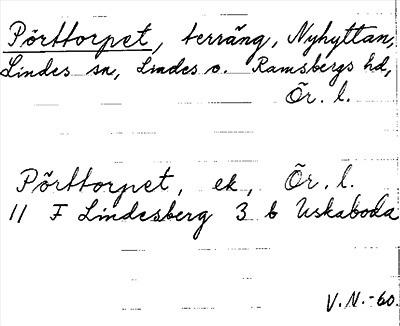 Pörttorpet, terräng, Nyhyttan,
Lindes sn, Lindes o. Ramsbergs hd,
Ör. l.
Pörttorpet, ek, Ör. l.
11 F Lindesberg 3 b Uskaboda
V.N.-60.